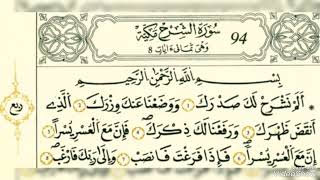 سُورَةُ الشَّرْحِ مَكِّيَّةٌ 94
وَهِيَ ثَمَانِي آيَاتٍ 8
بِسْمِ اللَّهِ الرَّحْمَٰنِ الرَّحِيمِ
أَلَمْ نَشْرَحْ لَكَ صَدْرَكَ ۝١ وَوَضَعْنَا عَنكَ وِزْرَكَ ۝٢ الَّذِي
أَنقَضَ ظَهْرَكَ ۝٣ وَرَفَعْنَا لَكَ ذِكْرَكَ ۝٤ فَإِنَّ مَعَ الْعُسْرِ يُسْرًا ۝٥
إِنَّ مَعَ الْعُسْرِ يُسْرًا ۝٦ فَإِذَا فَرَغْتَ فَانصَبْ ۝٧ وَإِلَىٰ رَبِّكَ فَارْغَب ۝٨
ربع